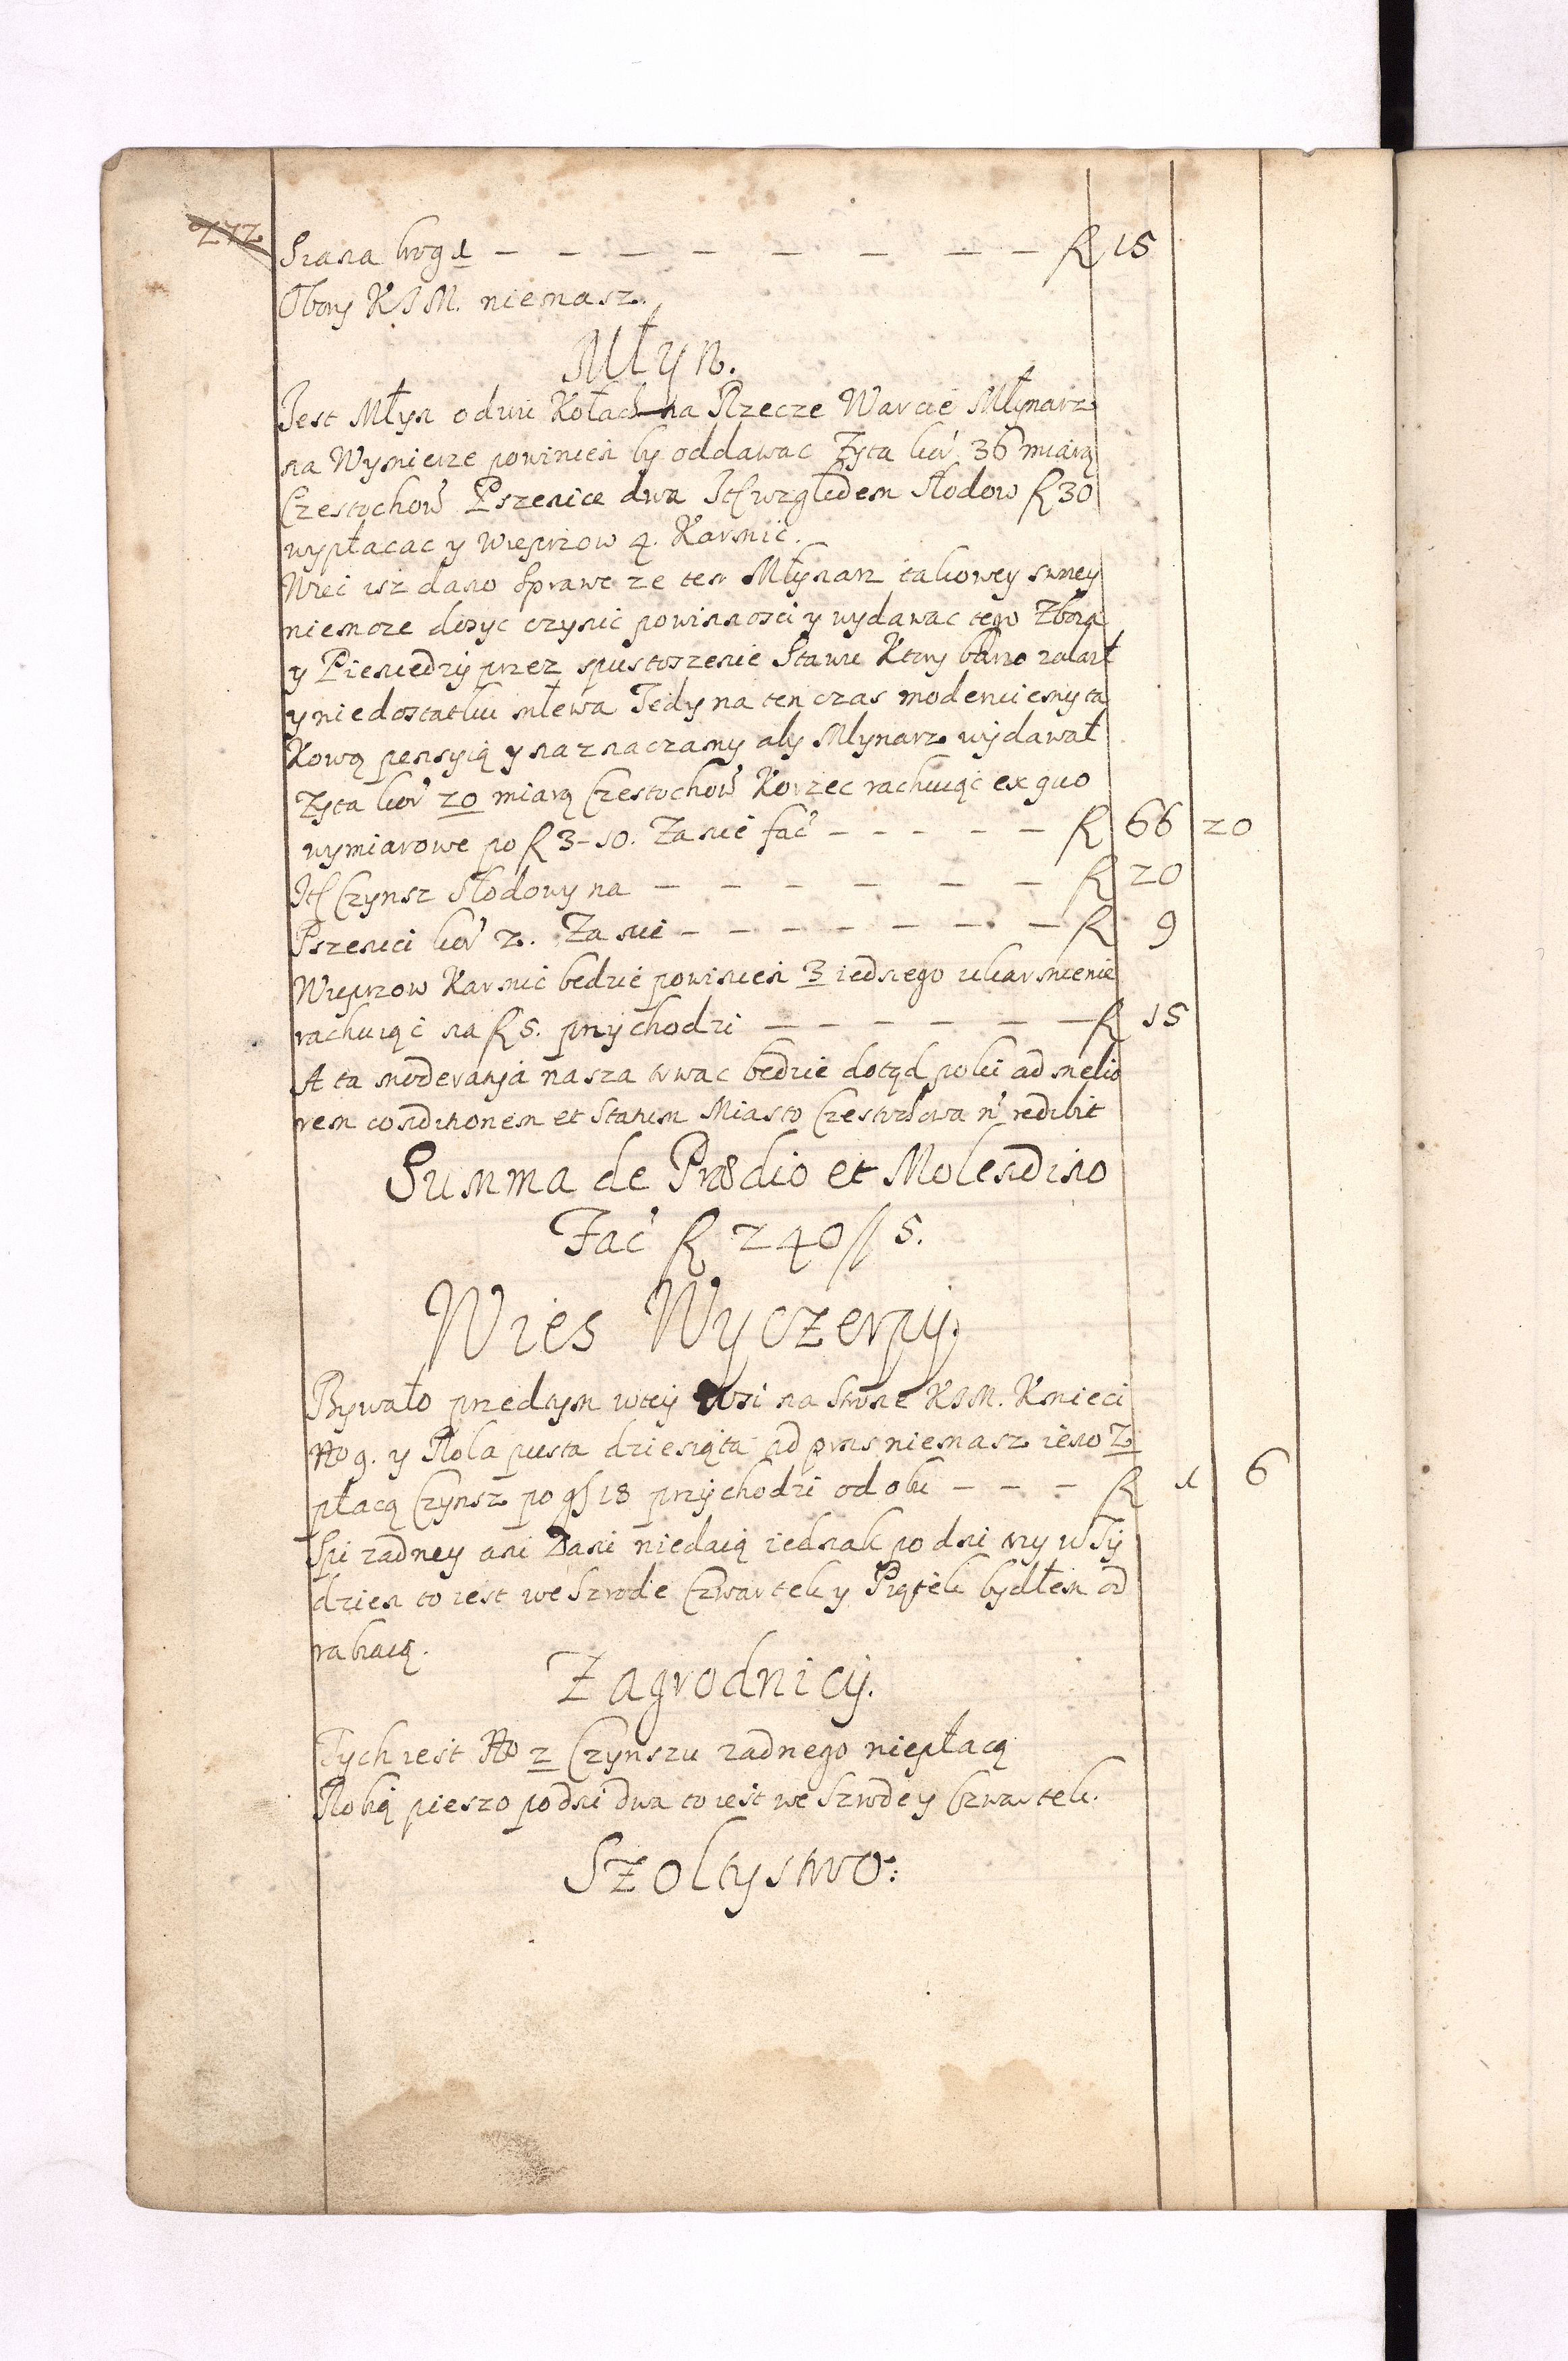 272
Siana brog 1 — — — — — — — — fl 15
Obory KJM. niemasz.
Młyn.
Jest Młyn o dwu Kołach na Rzecze Warcie Młynarz
na Wymierze powinien by oddawac Zyta kor̃ 36 miarą
Czestochow̃ Pszenice dwa It wzgłedem Słodow fl 30
wypłacac y wieprzow 4. Karmic.
Wiec isz dano sprawe ze ten Młynarz takowey swey
niemoze dosyc czynic powinnosci y wydawac tego Zboza
y Pieniedzy przez spustoszenie Stawu Ktory barzo zalazł
y niedostatku mlewa Tedy na ten czas moderuiemy ta
Kową pensyią y naznaczamy aby Mlynarz wydawał
Zyta kor̃ 20 miarą Czestochow̃ Korzec rachuiąc ex quo
wymiarowe po fl 3-10. Za nie fac̃ — — — — — fl 66 20
It Czynsz Słodowy na — — — — — — fl 20
Pszenici kor̃ 2. Za nie — — — — — — — fl 9
Wieprzow Karmic bedzie powinien 3 iednego ukarmienie
rachuiąc na fl 5. przychodzi — — — — — — fl 15
A ta moderatia nasza trwac bedzie dotąd poki ad melio
rem conditionem et Statum Miasto Czestochowa n̄ redibit
Summa de Prædio et Molendino
Fac̃ fl 240 // 5.
Wies Wyczerpy.
Bywało przedtym wtey wsi na strone KJM. Kmieci
No 9. y Rola pusta dziesiąta ad prns niemasz ieno 2
płacą Czynsz po gſ 18 przychodzi od obu — — — fl 1 6
Spi zadney ani Dani niedaią iednak po dni trzy w Ty
dzien to iest we Szrode Czwartek y Piątek bydłem od
rabiaią.
Zagrodnicy.
Tych iest No 2 Czynszu zadnego niepłacą
Robią pieszo po dni dwa to iest we Szrode y Czwartek.
Szoltystwo: